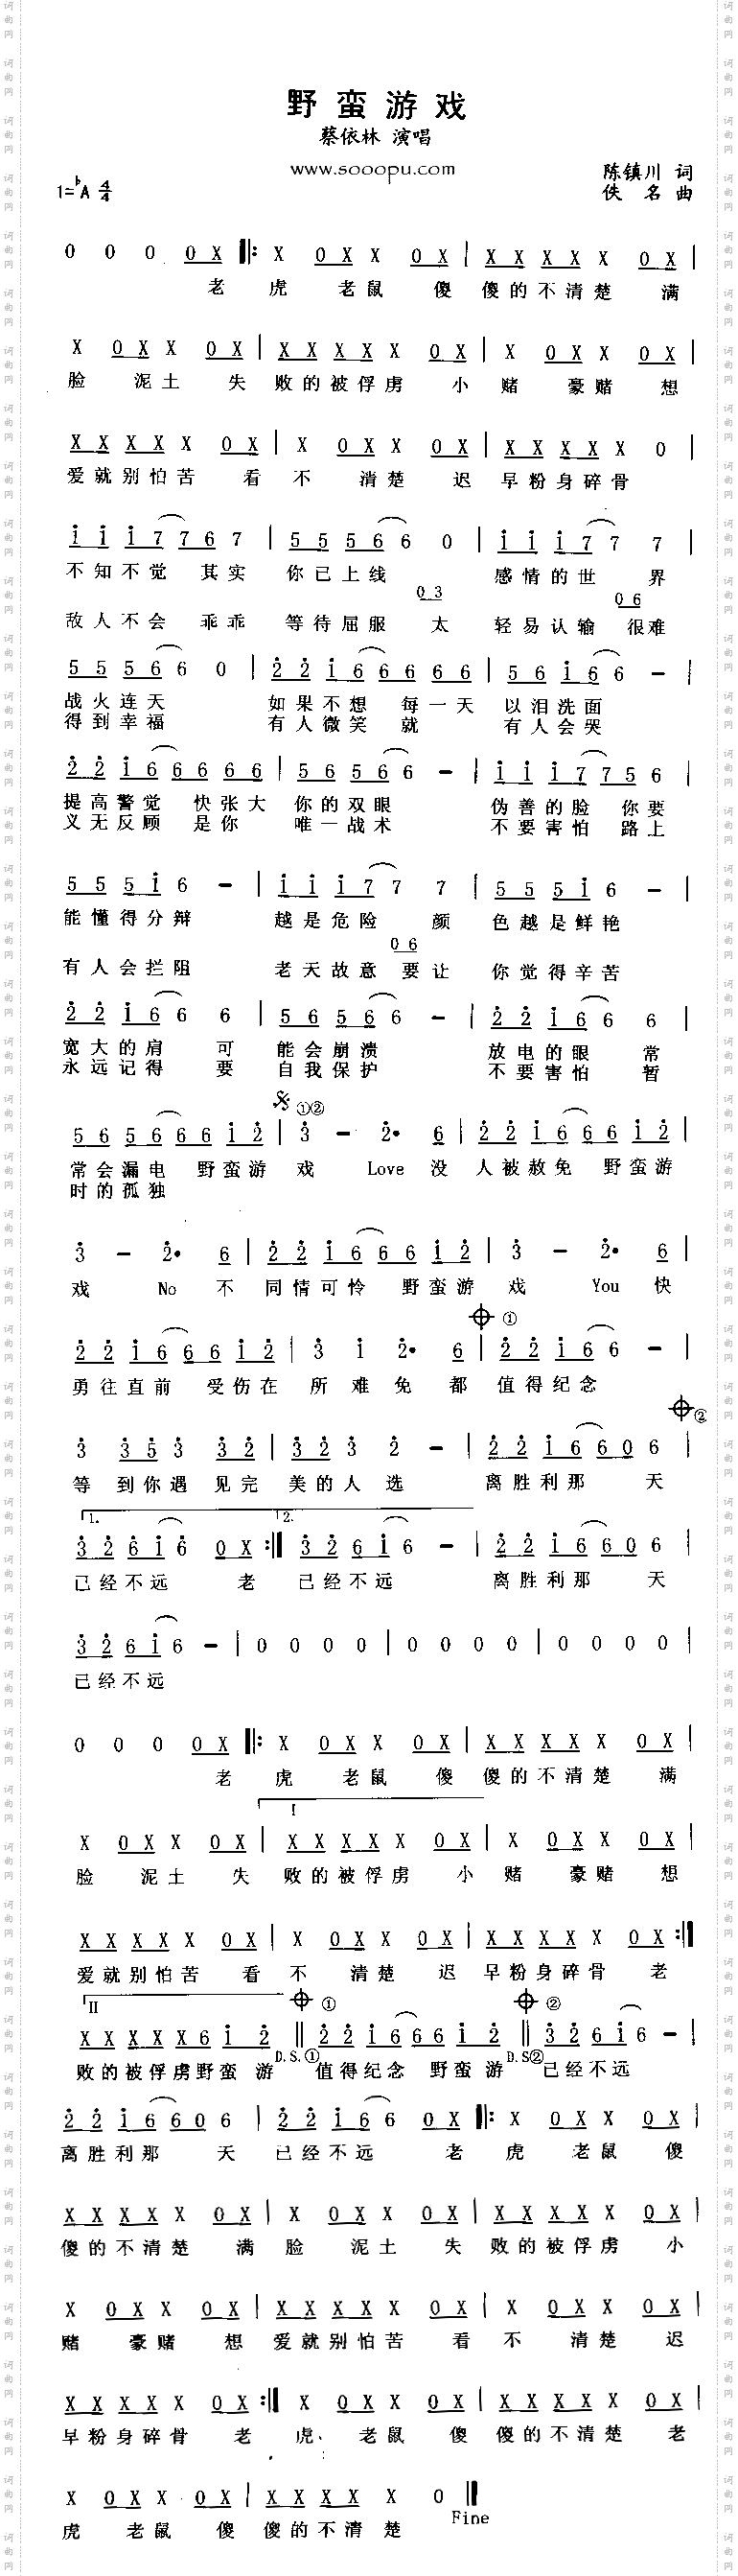 野蛮游戏
蔡依林 演唱
www.sooopu.com
陈镇川 词
1=♭A 4/4
佚 名 曲
0 0 0 0 X ‖: X 0 X X 0 X | X X X X X 0 X |
老 虎 老鼠 傻 傻的不清楚 满
X 0 X X 0 X | X X X X X 0 X | X 0 X X 0 X |
脸 泥土 失 败的被俘虏 小 赌 豪赌 想
X X X X X 0 X | X 0 X X 0 X | X X X X X 0 |
爱就别怕苦 看 不 清楚 迟 早粉身碎骨
i i i 7 7 6 7 | 5 5 5 6 6 0 | i i i 7 7 7 |
不知不觉 其实 你已上线 感情的世 界
0 3 0 6
敌人不会 乖乖 等待屈服 太 轻易认输 很难
5 5 5 6 6 0 | 2 2 i 6 6 6 6 6 | 5 6 i 6 6 - |
战火连天 如果不想 每一天 以泪洗面
得到幸福 有人微笑 就 有人会哭
2 2 i 6 6 6 6 6 | 5 6 5 6 6 - | i i i 7 7 5 6 |
提高警觉 快张大 你的双眼 伪善的脸 你要
义无反顾 是你 唯一战术 不要害怕 路上
5 5 5 i 6 - | i i i 7 7 7 | 5 5 5 i 6 - |
能懂得分辩 越是危险 颜 色越是鲜艳
0 6
有人会拦阻 老天故意 要让 你觉得辛苦
2 2 i 6 6 6 | 5 6 5 6 6 - | 2 2 i 6 6 6 |
宽大的肩 可 能会崩溃 放电的眼 常
永远记得 要 自我保护 不要害怕 暂
𝄋 ①②
5 6 5 6 6 6 i 2 | 3 - 2· 6 | 2 2 i 6 6 6 i 2 |
常会漏电 野蛮游 戏 Love 没 人被赦免 野蛮游
时的孤独
3 - 2· 6 | 2 2 i 6 6 6 i 2 | 3 - 2· 6 |
戏 No 不 同情可怜 野蛮游 戏 You 快
𝄌 ①
2 2 i 6 6 6 i 2 | 3 i 2· 6 | 2 2 i 6 6 - |
勇往直前 受伤在 所 难 免 都 值得纪念
𝄌 ②
3 3 5 3 3 2 | 3 2 3 2 - | 2 2 i 6 6 0 6 |
等 到你遇 见完 美的人 选 离胜利那 天
1. 2.
3 2 6 i 6 0 X :‖ 3 2 6 i 6 - | 2 2 i 6 6 0 6 |
已经不远 老 已经不远 离胜利那 天
3 2 6 i 6 - | 0 0 0 0 | 0 0 0 0 | 0 0 0 0 |
已经不远
0 0 0 0 X ‖: X 0 X X 0 X | X X X X X 0 X |
老 虎 老鼠 傻 傻的不清楚 满
I
X 0 X X 0 X | X X X X X 0 X | X 0 X X 0 X |
脸 泥土 失 败的被俘虏 小 赌 豪赌 想
X X X X X 0 X | X 0 X X 0 X | X X X X X 0 X :‖
爱就别怕苦 看 不 清楚 迟 早粉身碎骨 老
II 𝄌 ① 𝄌 ②
X X X X X 6 i 2 ‖ 2 2 i 6 6 6 i 2 ‖ 3 2 6 i 6 - |
败的被俘虏野蛮 游 D.S.① 值得纪念 野蛮 游 D.S② 已经不远
2 2 i 6 6 0 6 | 2 2 i 6 6 0 X ‖: X 0 X X 0 X |
离胜利那 天 已经不远 老 虎 老鼠 傻
X X X X X 0 X | X 0 X X 0 X | X X X X X 0 X |
傻的不清楚 满 脸 泥土 失 败的被俘虏 小
X 0 X X 0 X | X X X X X 0 X | X 0 X X 0 X |
赌 豪赌 想 爱就别怕苦 看 不 清楚 迟
X X X X X 0 X :‖ X 0 X X 0 X | X X X X X 0 X |
早粉身碎骨 老 虎、 老鼠 傻 傻的不清楚 老
X 0 X X 0 X | X X X X X 0 ‖
Fine
虎 老鼠 傻 傻的不清楚
词曲网